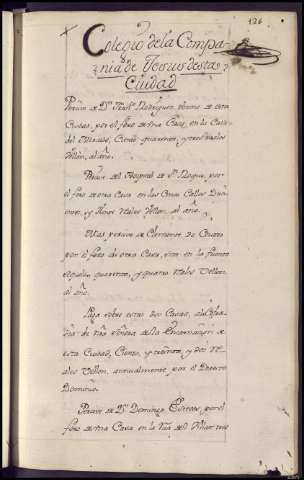 126
Colegio de la Compa
nia de Jesus desta
Ciudad
Percive de Dn. Rodriguez, vecino de esta
Ciudad, por el foro de una Casa, en la Calle
del Ciento quarenta, y tres reales
Vellon, al año.
Percive del Hospital de Sn. Roque, por
el foro de otra Casa en las Cinco Calles
y Nueve reales vellon, al año.
Mas percive de Clemente de Couto
por el foro de otra Casa, sita en la fuente
quarenta, y quatro reales Vellon,
al año.
Paga sobre estas dos Casas, a la Cofra
dia de nra Señora de la Encarnacion de
esta Ciudad, Ciento, y y dos Rea
les Vellon, annualmente por el Directo
Dominio.
Percive de Dn. Domingo por el
foro de una Casa en la Rua del Villar tres